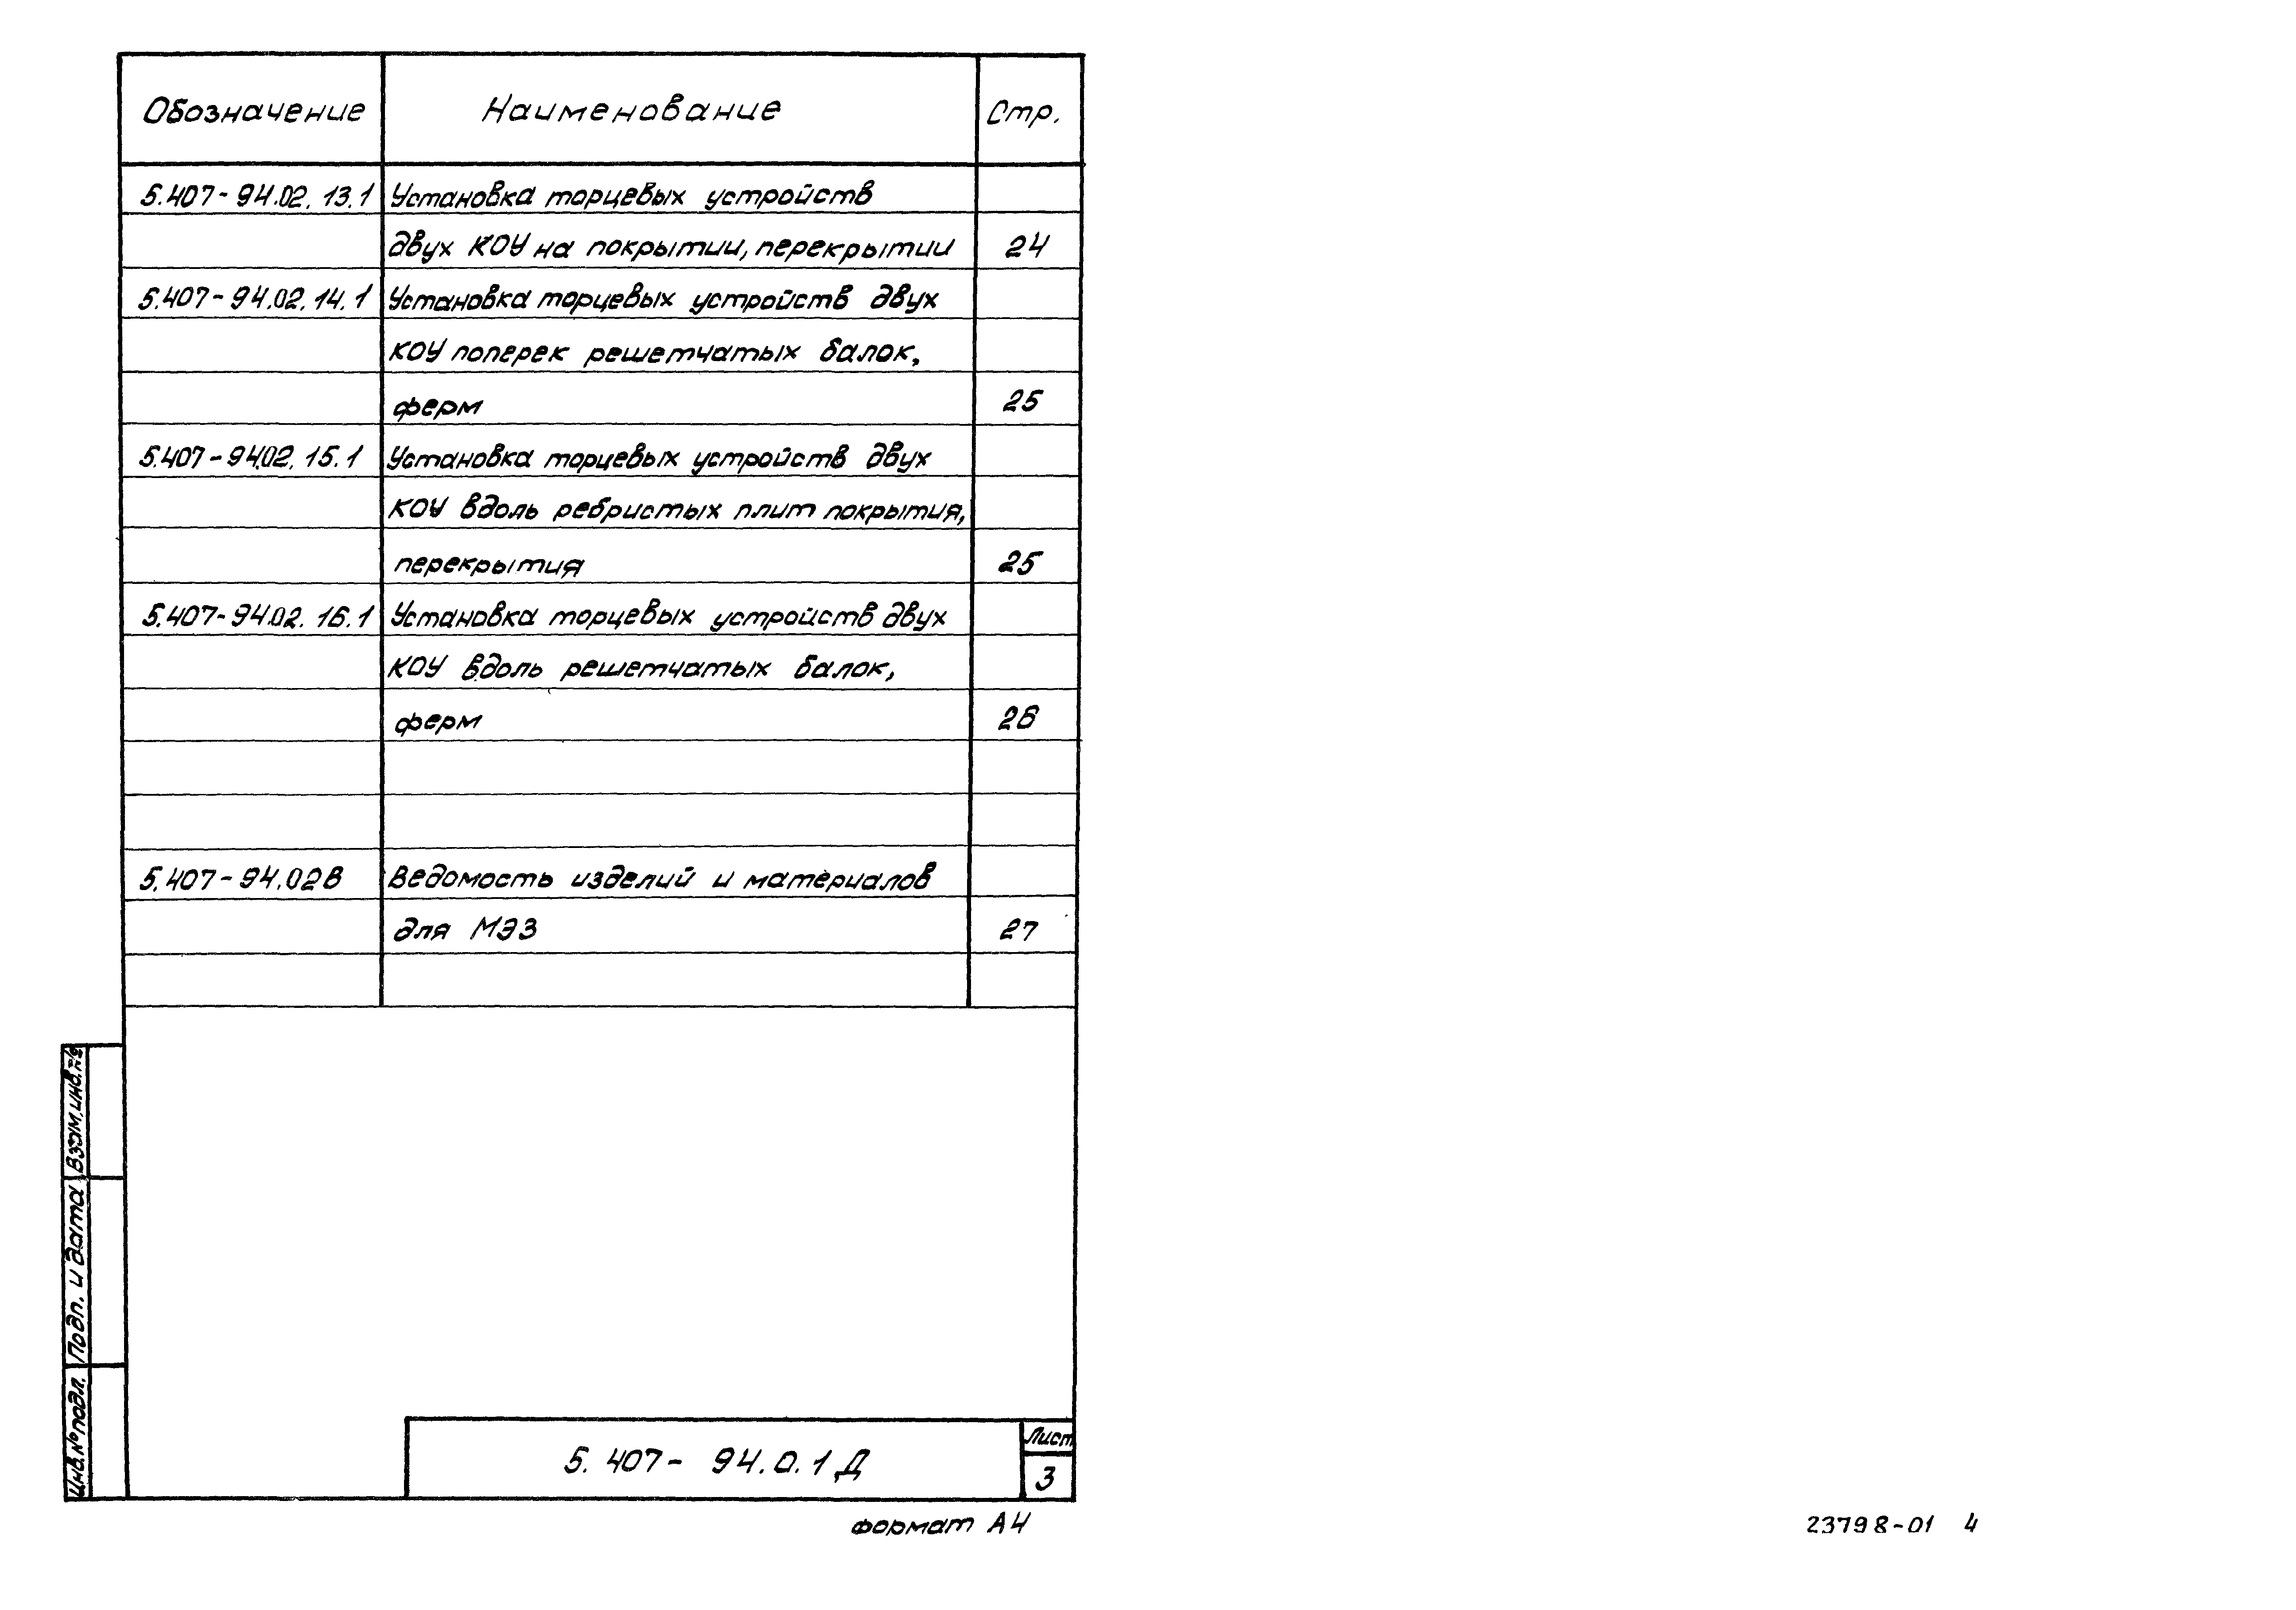 Обозначение Наименование Стр.
5.407-94.02.13.1 Установка торцевых устройств
двух КОУ на покрытии, перекрытии 24
5.407-94.02.14.1 Установка торцевых устройств двух
КОУ поперек решетчатых балок,
ферм 25
5.407-94.02.15.1 Установка торцевых устройств двух
КОУ вдоль ребристых плит покрытия,
перекрытия 25
5.407-94.02.16.1 Установка торцевых устройств двух
КОУ вдоль решетчатых балок,
ферм 26
5.407-94.02В Ведомость изделий и материалов
для МЭЗ 27
Взам.инв.№
Подп. и дата
Инв.№подл.
5.407-94.0.1Д
Лист
3
формат А4
23798-01 4